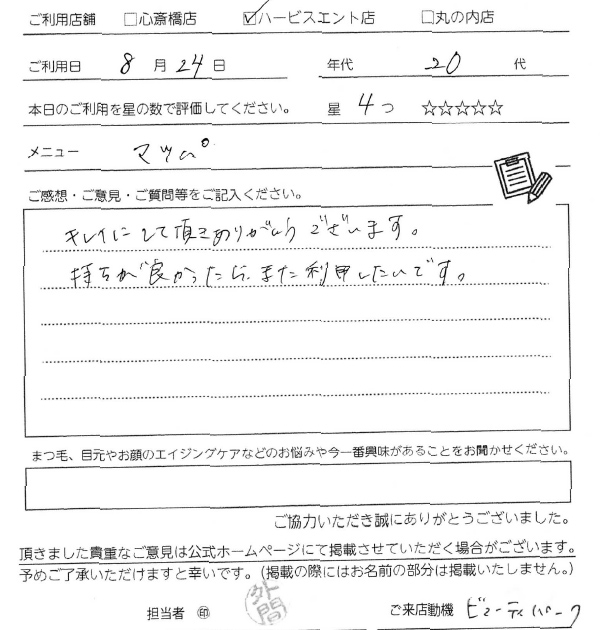 ご利用店舗 □心斎橋店 ☑ハービスエント店 □丸の内店
ご利用日 8 月 24 日 年代 20 代
本日のご利用を星の数で評価してください。 星 4つ ☆☆☆☆☆
メニュー マツパ
ご感想・ご意見・ご質問等をご記入ください。
キレイにして頂きありがとうございます。
持ちが良かったら、また利用したいです。
まつ毛、目元やお顔のエイジングケアなどのお悩みや今一番興味があることをお聞かせください。
ご協力いただき誠にありがとうございました。
頂きました貴重なご意見は公式ホームページにて掲載させていただく場合がございます。
予めご了承いただけますと幸いです。(掲載の際にはお名前の部分は掲載いたしません。)
担当者 ㊞ 外間 ご来店動機 ビューティパーク